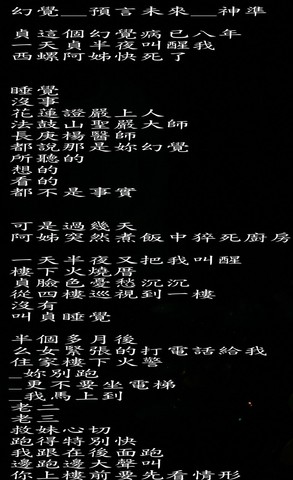 幻覺__預言未來__神準
貞這個幻覺病已八年
一天貞半夜叫醒我
西螺阿姊快死了
睡覺
沒事
花蓮證嚴上人
法鼓山聖嚴大師
長庚楊醫師
都說那是妳幻覺
所聽的
想的
看的
都不是事實
可是過幾天
阿姊突然煮飯中猝死廚房
一天半夜又把我叫醒
樓下火燒厝
貞臉色憂愁沉沉
從四樓巡視到一樓
沒有
叫貞睡覺
半個多月後
么女緊張的打電話給我
住家樓下火警
_妳別跑
_更不要坐電梯
_我馬上到
老二
老三
救妹心切
跑得特別快
我跟在後面跑
邊跑邊大聲叫
你上樓前要先看情形